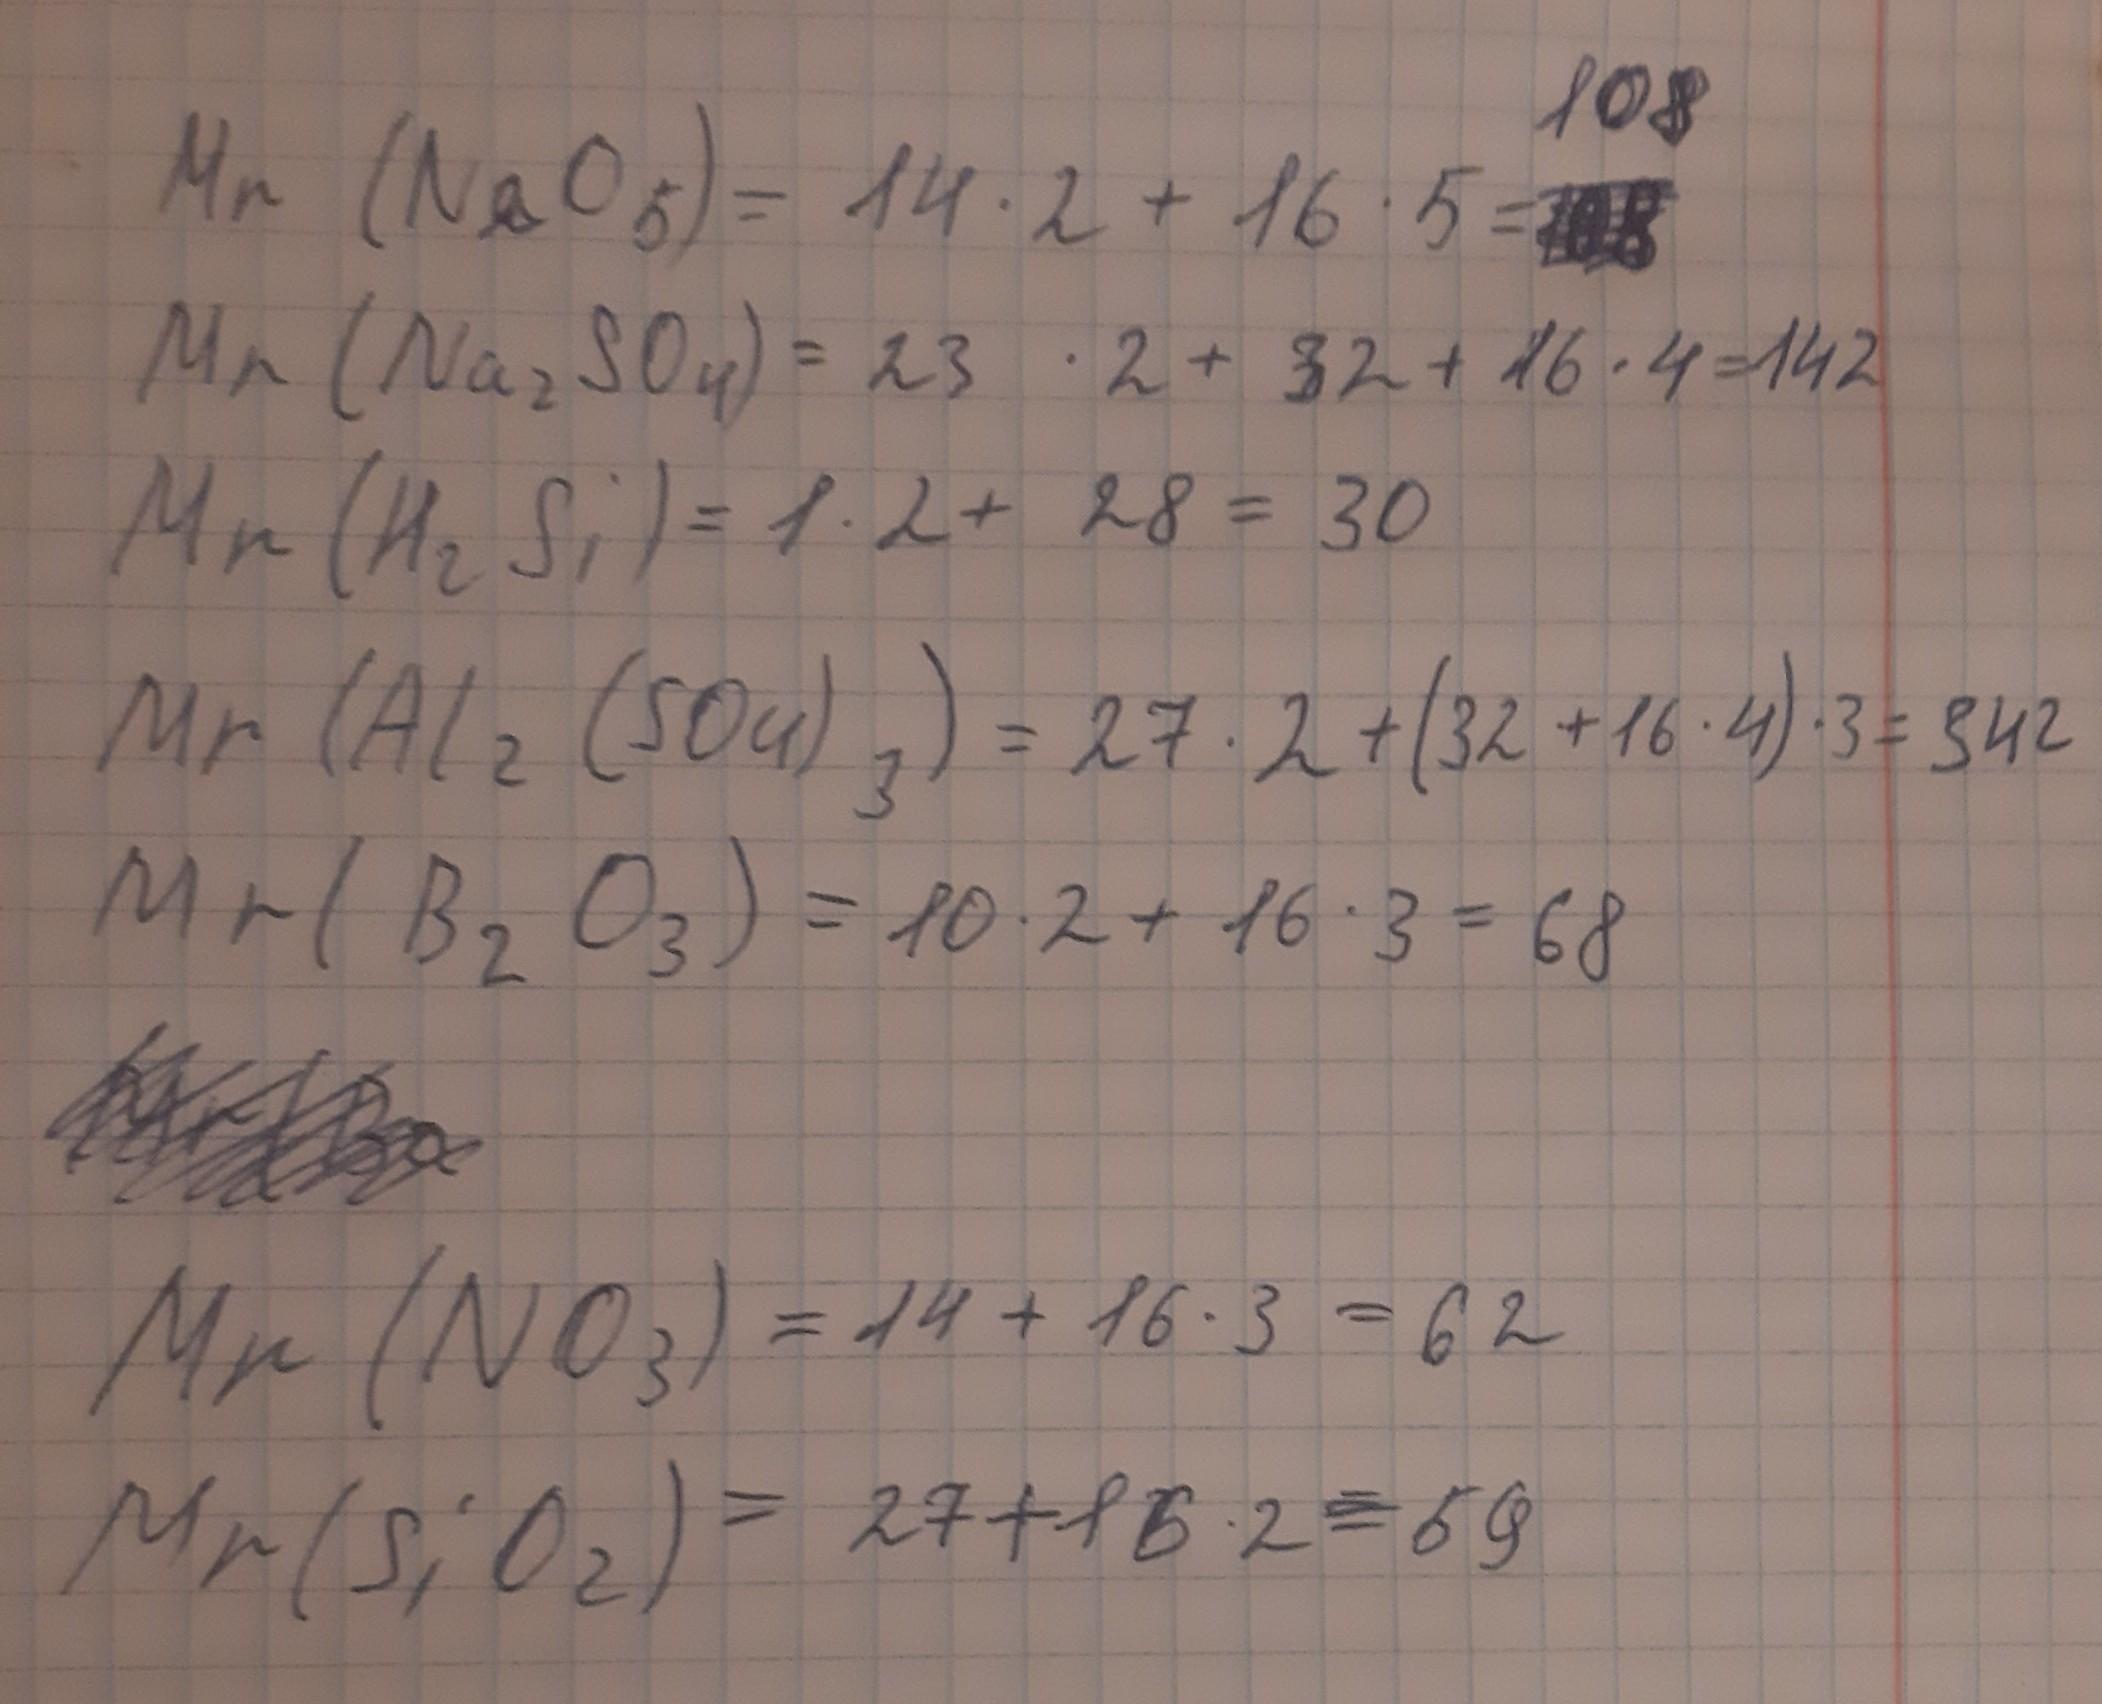 108
Mr (N₂O₅) = 14 · 2 + 16 · 5 =
Mr (Na₂SO₄) = 23 · 2 + 32 + 16 · 4 = 142
Mr (H₂Si) = 1 · 2 + 28 = 30
Mr (Al₂(SO₄)₃) = 27 · 2 + (32 + 16 · 4) · 3 = 342
Mr (B₂O₃) = 10 · 2 + 16 · 3 = 68
Mr (NO₃) = 14 + 16 · 3 = 62
Mr (SiO₂) = 27 + 16 · 2 = 59